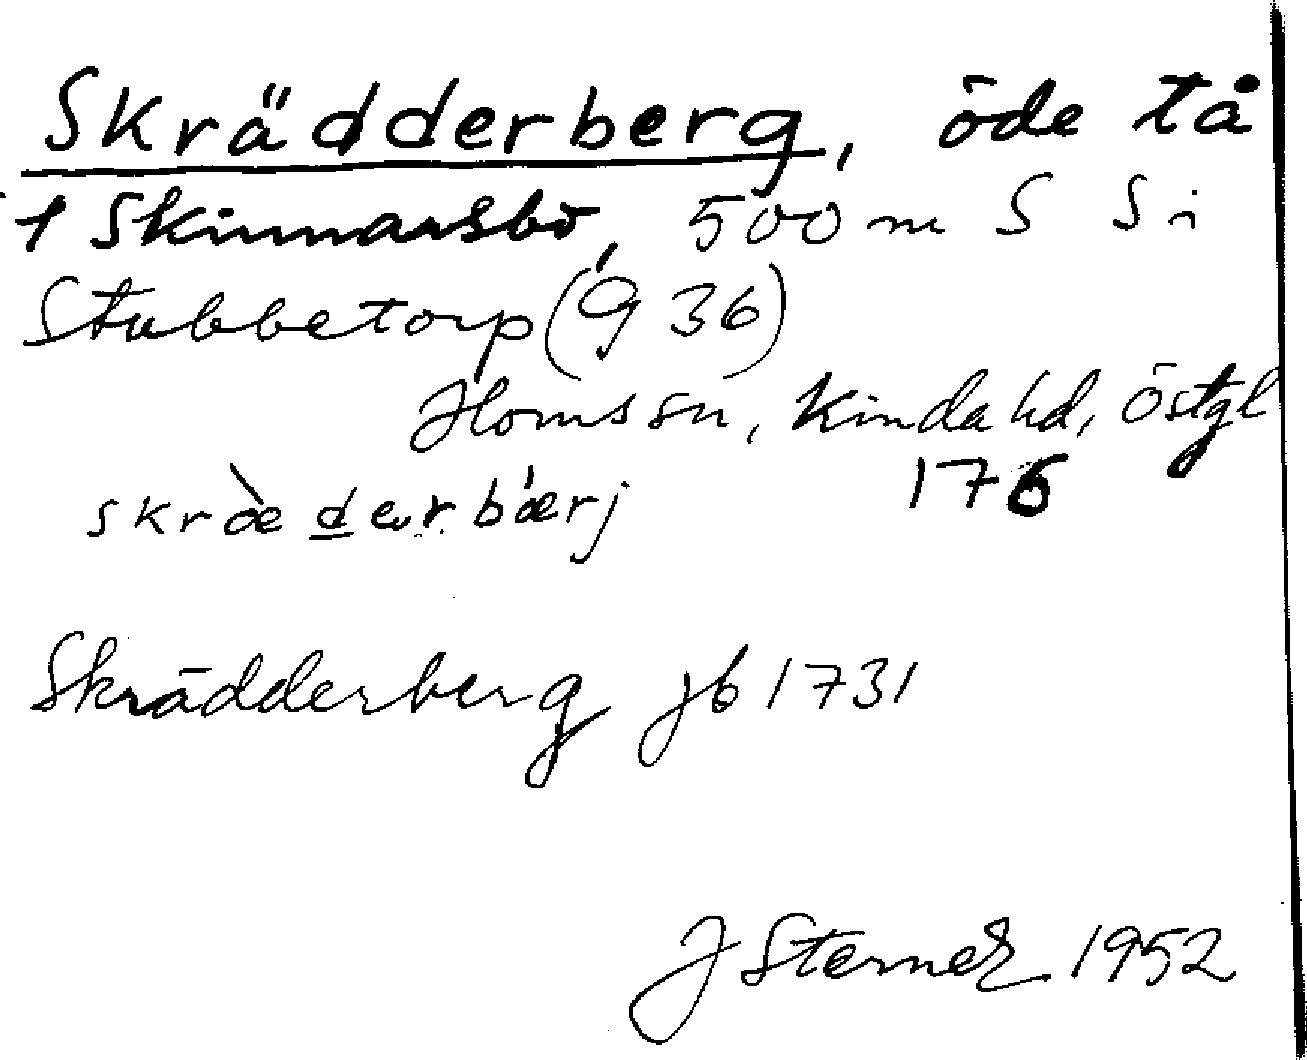 Skrädderberg, öde tå
t Skinnarsbo, 500 m S S i
Stubbetorp (G 36)
Horns sn, Kinda hd, Östgl
176
skræ̀derbǽrj
Skrädderberg jb 1731
J Sterner 1952